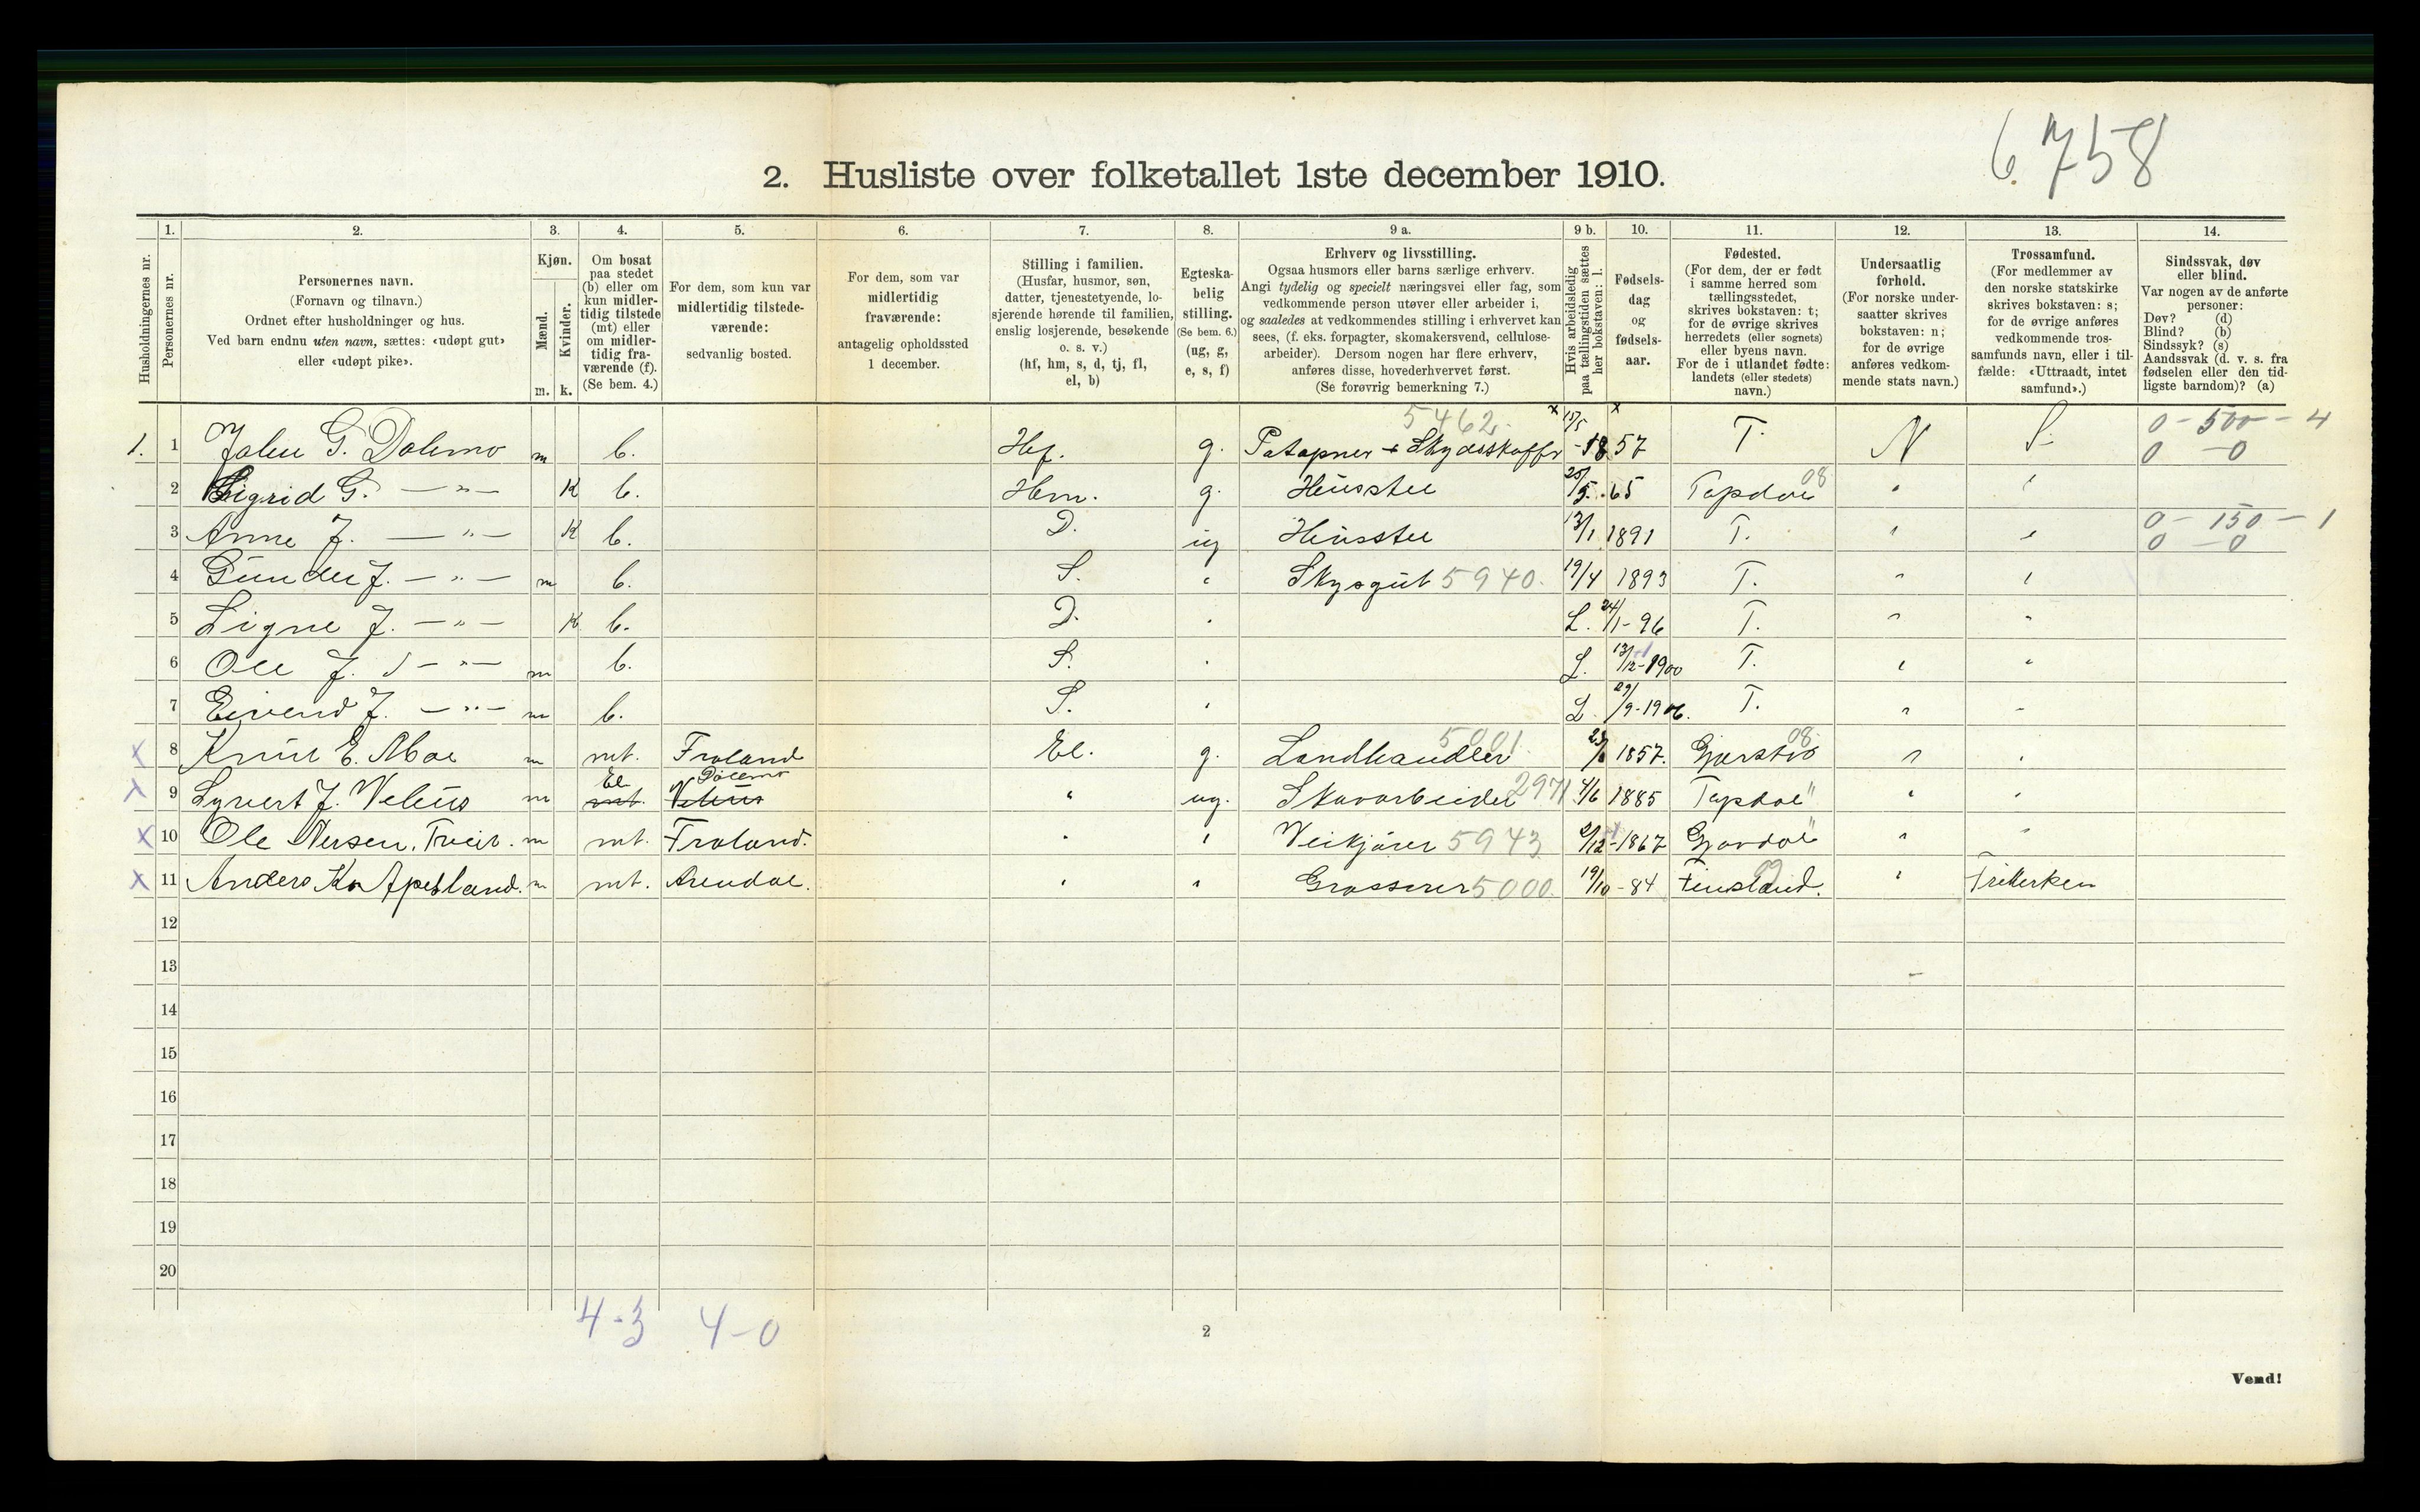 6.758
2. Husliste over folketallet 1ste december 1910.
Husholdningernes nr.
1. Personernes nr.
2. Personernes navn. (Fornavn og tilnavn.) Ordnet efter husholdninger og hus. Ved barn endnu uten navn, sættes: «udøpt gut» eller «udøpt pike».
3. Kjøn. Mænd. m. Kvinder. k.
4. Om bosat paa stedet (b) eller om kun midler- tidig tilstede (mt) eller om midler- tidig fra- værende (f). (Se bem. 4.)
5. For dem, som kun var midlertidig tilstede- værende: sedvanlig bosted.
6. For dem, som var midlertidig fraværende: antagelig opholdssted 1 december.
7. Stilling i familien. (Husfar, husmor, søn, datter, tjenestetyende, lo- sjerende hørende til familien, enslig losjerende, besøkende o. s. v.) (hf, hm, s, d, tj, fl, el, b)
8. Egteska- belig stilling. (Se bem. 6.) (ug, g, e, s, f)
9 a. Erhverv og livsstilling. Ogsaa husmors eller barns særlige erhverv. Angi tydelig og specielt næringsvei eller fag, som vedkommende person utøver eller arbeider i, og saaledes at vedkommendes stilling i erhvervet kan sees, (f. eks. forpagter, skomakersvend, cellulose- arbeider). Dersom nogen har flere erhverv, anføres disse, hovederhvervet først. (Se forøvrig bemerkning 7.)
9 b. Hvis arbeidsledig paa tællingstiden sættes her bokstaven: l.
10. Fødsels- dag og fødsels- aar.
11. Fødested. (For dem, der er født i samme herred som tællingsstedet, skrives bokstaven: t; for de øvrige skrives herredets (eller sognets) eller byens navn. For de i utlandet fødte: landets (eller stedets) navn.)
12. Undersaatlig forhold. (For norske under- saatter skrives bokstaven: n; for de øvrige anføres vedkom- mende stats navn.)
13. Trossamfund. (For medlemmer av den norske statskirke skrives bokstaven: s; for de øvrige anføres vedkommende tros- samfunds navn, eller i til- fælde: «Uttraadt, intet samfund».)
14. Sindssvak, døv eller blind. Var nogen av de anførte personer: Døv? (d) Blind? (b) Sindssyk? (s) Aandssvak (d. v. s. fra fødselen eller den tid- ligste barndom)? (a)
5462 x 15/5 x 0 - 500 - 4
1. 1 G. Dolemo m b. Hf. g. + -1857 T. N S- 0 - 0
2 Sigrid G. — " — K b. Hm. g. Husstel 25/5.65 Topdal 08 " "
3 Anne J. — " — K b. D. ug Husstel 13/1 1891 T. " " 0 - 150 - 1 0 - 0
4 Gunder J. — " — m b. S. " Skysgut 5940. 19/4 1893 T. " "
5 Signe J. — " — K b. D. " L. 24/1-96 T. " "
6 Ole J. — " — m b. S. " L. 13/12-1900 T. " "
7 Eivend J. — " — m b. S. " L. 29/9-1906. T. " "
x 8 Knut E. m mt. Froland El. g. Landhandler 5001. 1857. Gjerstad 08 " "
x 9 J. Vehus m El mt. Dølemo Vehus " ug. Skovarbeider 2971 4/6 1885 Topdal " " "
x 10 Ole Nersen, m mt. Froland. " " Veikjører 5943 2/12-1867 Gjøvdal " " "
x 11 Anders m mt. Arendal. " " Grosserer 5000. 19/10-84 Finsland. 09 " Frikerken
12
13
14
15
16
17
18
19
20
4-3 4-0
2
Vend!